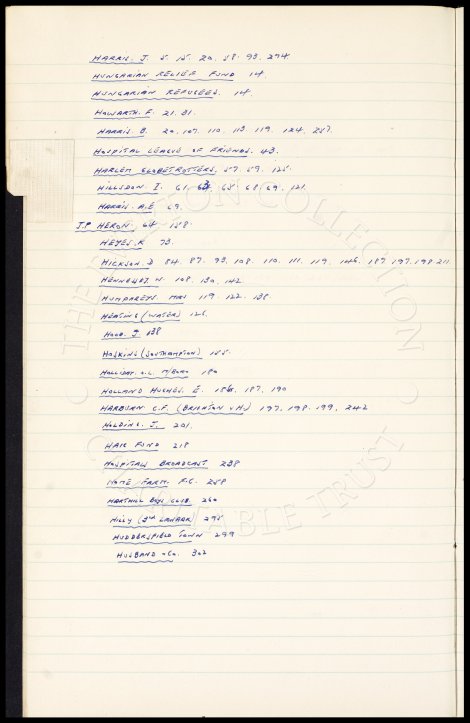 HARRIS. J. 5. 15. 20. 58. 93. 274
HUNGARIAN RELIEF FUND 14.
HUNGARIAN REFUGEES. 14.
HOWARTH. F. 21. 31.
HARRIS. B. 20. 107. 110. 113. 119. 124. 257.
HOSPITAL LEAGUE OF FRIENDS. 43.
HARLEM GLOBETROTTERS. 57. 59. 125.
HILLSDON. I. 61. 65. 68. 69. 121.
HARRIS. A.E. 69.
J.P HERON. 64. 158.
HEYES. R 73.
HICKSON. D 84. 87. 93. 108. 110. 111. 119. 146. 187. 197. 198. 211.
HENNESSEY. W. 108. 130. 142
HUMPHREYS. MRS 119. 122. 138
HEATING (WATER) 126.
HOBB. J 138
HOSKINS (SOUTHAMPTON) 155.
HOLLIDAY. 180
HOLLAND HUGHES. E. 187. 190
HARBURN C.F. (BRIGHTON 197. 198. 199. 242
HOLDING. J. 201.
HAIG FUND 218
HOSPITALS BROADCAST 238
HOME FARM. F.C. 258
HARTHILL BOYS CLUB. 260
HILLY 295
HUDDERSFIELD TOWN 299
HUSBAND & Co. 302
THE COLLECTION
CHARITABLE TRUST